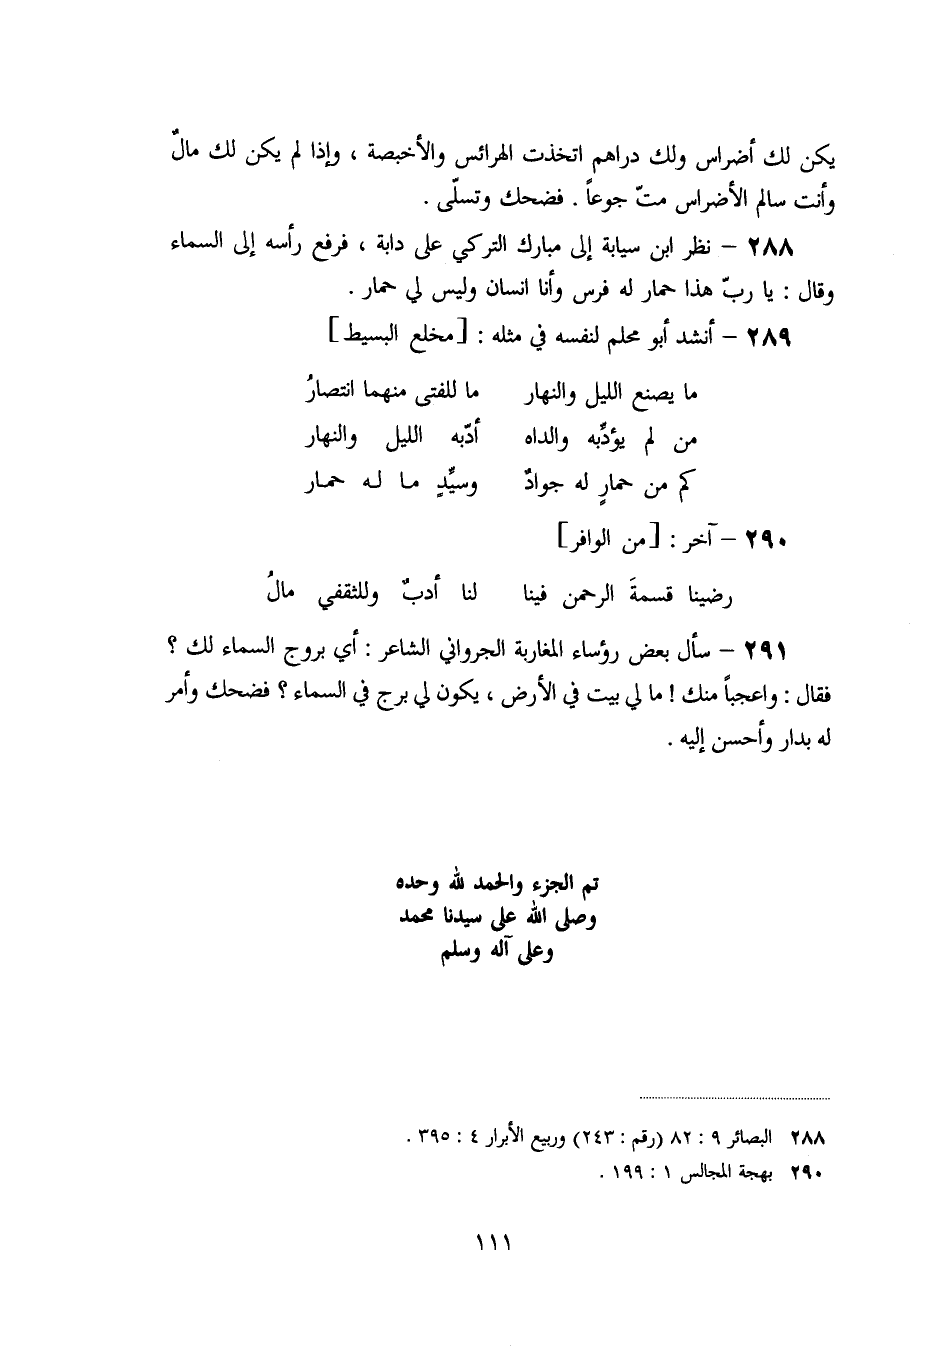 يكن لك أضراس ولك دراهم اتخذت الهرائس والأخبصة ، وإذا لم يكن لك مالٌ
وأنت سالم الأضراس متّ جوعاً . فضحك وتسلّى .
٢٨٨ – نظر ابن سيابة إلى مبارك التركي على دابة ، فرفع رأسه إلى السماء
وقال : يا ربّ هذا حمار له فرس وأنا انسان وليس لي حمار .
٢٨٩ – أنشد أبو محلم لنفسه في مثله : [مخلع البسيط]
ما يصنع الليل والنهار ما للفتى منهما انتصارُ
من لم يؤدِّبه والداه أدّبه الليل والنهار
كم من حمارٍ له جوادٌ وسيِّدٍ ما له حمار
٢٩٠ – آخر : [من الوافر]
رضينا قسمةَ الرحمن فينا لنا أدبٌ وللثقفي مالُ
٢٩١ – سأل بعض رؤساء المغاربة الجرواني الشاعر : أي بروج السماء لك ؟
فقال : واعجباً منك ! ما لي بيت في الأرض ، يكون لي برج في السماء ؟ فضحك وأمر
له بدار وأحسن إليه .
تم الجزء والحمد لله وحده
وصلى الله على سيدنا محمد
وعلى آله وسلم
٢٨٨ البصائر ٩ : ٨٢ (رقم : ٢٤٣) وربيع الأبرار ٤ : ٣٩٥ .
٢٩٠ بهجة المجالس ١ : ١٩٩ .
١١١